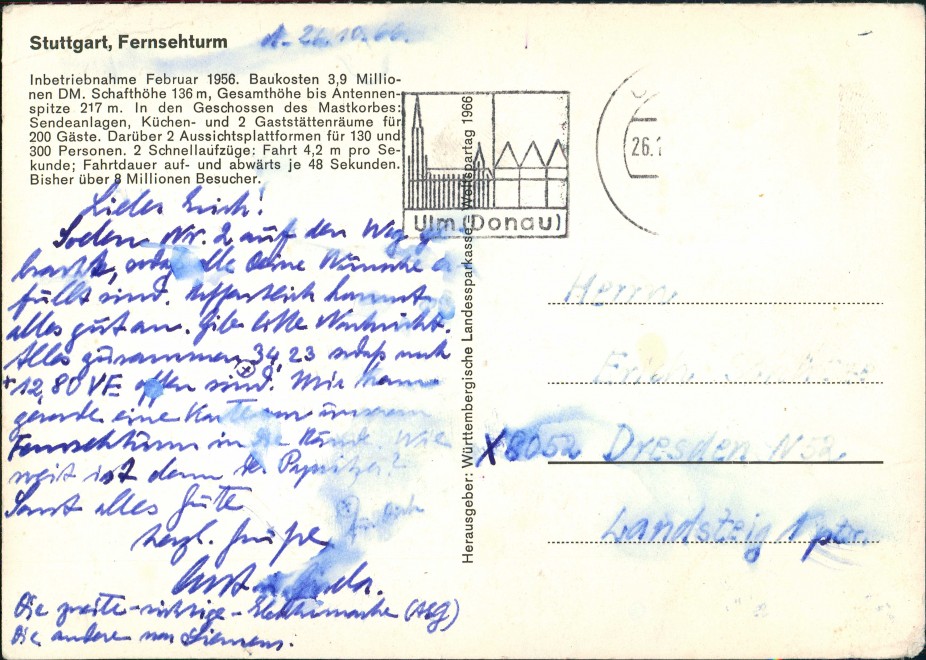 Stuttgart, Fernsehturm
d. 26.10.66.
Inbetriebnahme Februar 1956. Baukosten 3,9 Millio-
nen DM. Schafthöhe 136 m, Gesamthöhe bis Antennen-
spitze 217 m. In den Geschossen des Mastkorbes:
Sendeanlagen, Küchen- und 2 Gaststättenräume für
200 Gäste. Darüber 2 Aussichtsplattformen für 130 und
300 Personen. 2 Schnellaufzüge: Fahrt 4,2 m pro Se-
kunde; Fahrtdauer auf- und abwärts je 48 Sekunden.
Bisher über 8 Millionen Besucher.
Lieber Erich!
Soeben Nr. 2 auf den Weg ge-
bracht, alle Deine Wünsche er-
füllt sind. Hoffentlich kommt
alles gut an. Gib bitte Nachricht.
Alles zusammen 34,23 noch
+ 12,80 VE offen sind. Mir kam
gerade eine Karte von unserem
Fernsehturm in die Hände. Wie
weit ist denn der
Sonst alles Gute
für dich
herzl. Grüße
Die zweite - richtige - Elektronuhr (AEG)
Die andere von Siemens.
Weltspartag 1966
Ulm (Donau)
26.1
Herausgeber: Württembergische Landessparkasse
Herrn
Erich
X 8052 Dresden N 52
Landsteig 1 ptr.